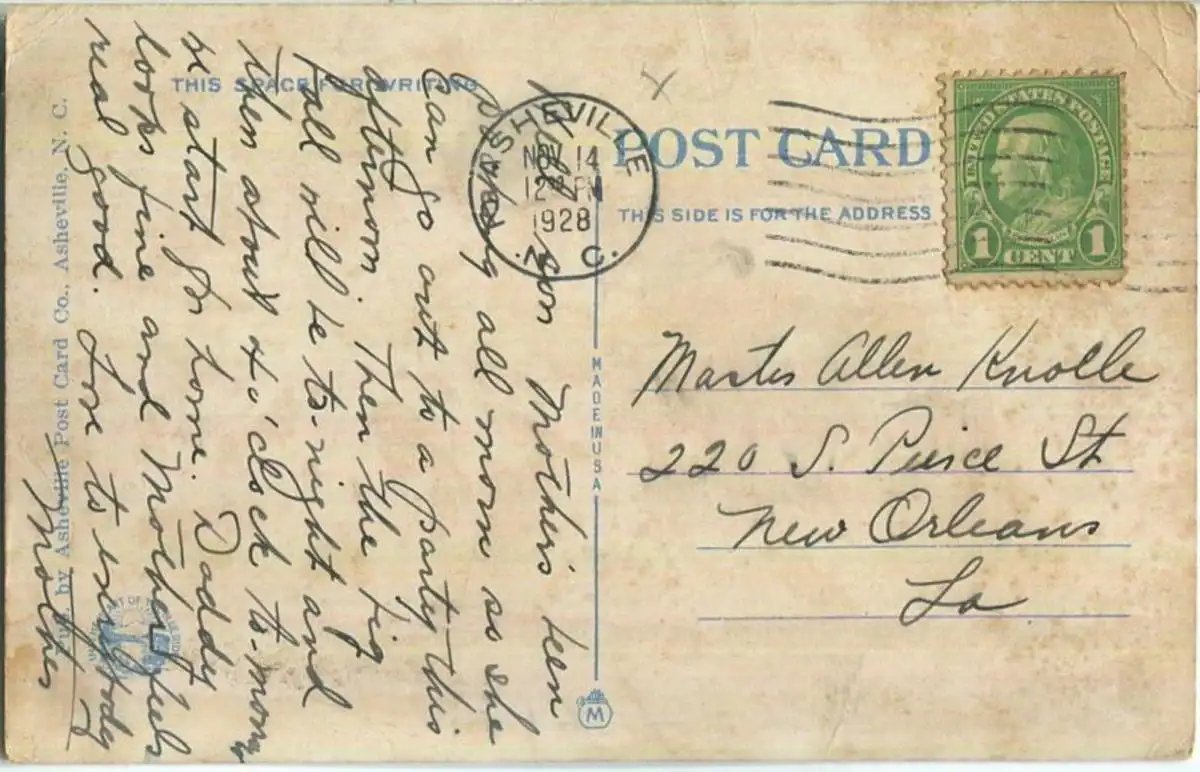 THIS SPACE FOR WRITING
POST CARD
THIS SIDE IS FOR THE ADDRESS
ASHEVILLE
NOV 14
12 PM
1928
N. C.
UNITED STATES POSTAGE
FRANKLIN
1 CENT 1
Master Allen Knolle
220 S. Pierce St
New Orleans
La
son Mother's been
all morn as she
can go out to a party this
afternoon. Then the big
ball will be to-night and
then about o'clock to-morrow
we start for home. Daddy
looks fine and Mother feels
real good. Love to everybody
Mother
MADE IN USA
M
Pub. by Asheville Post Card Co., Asheville, N. C.